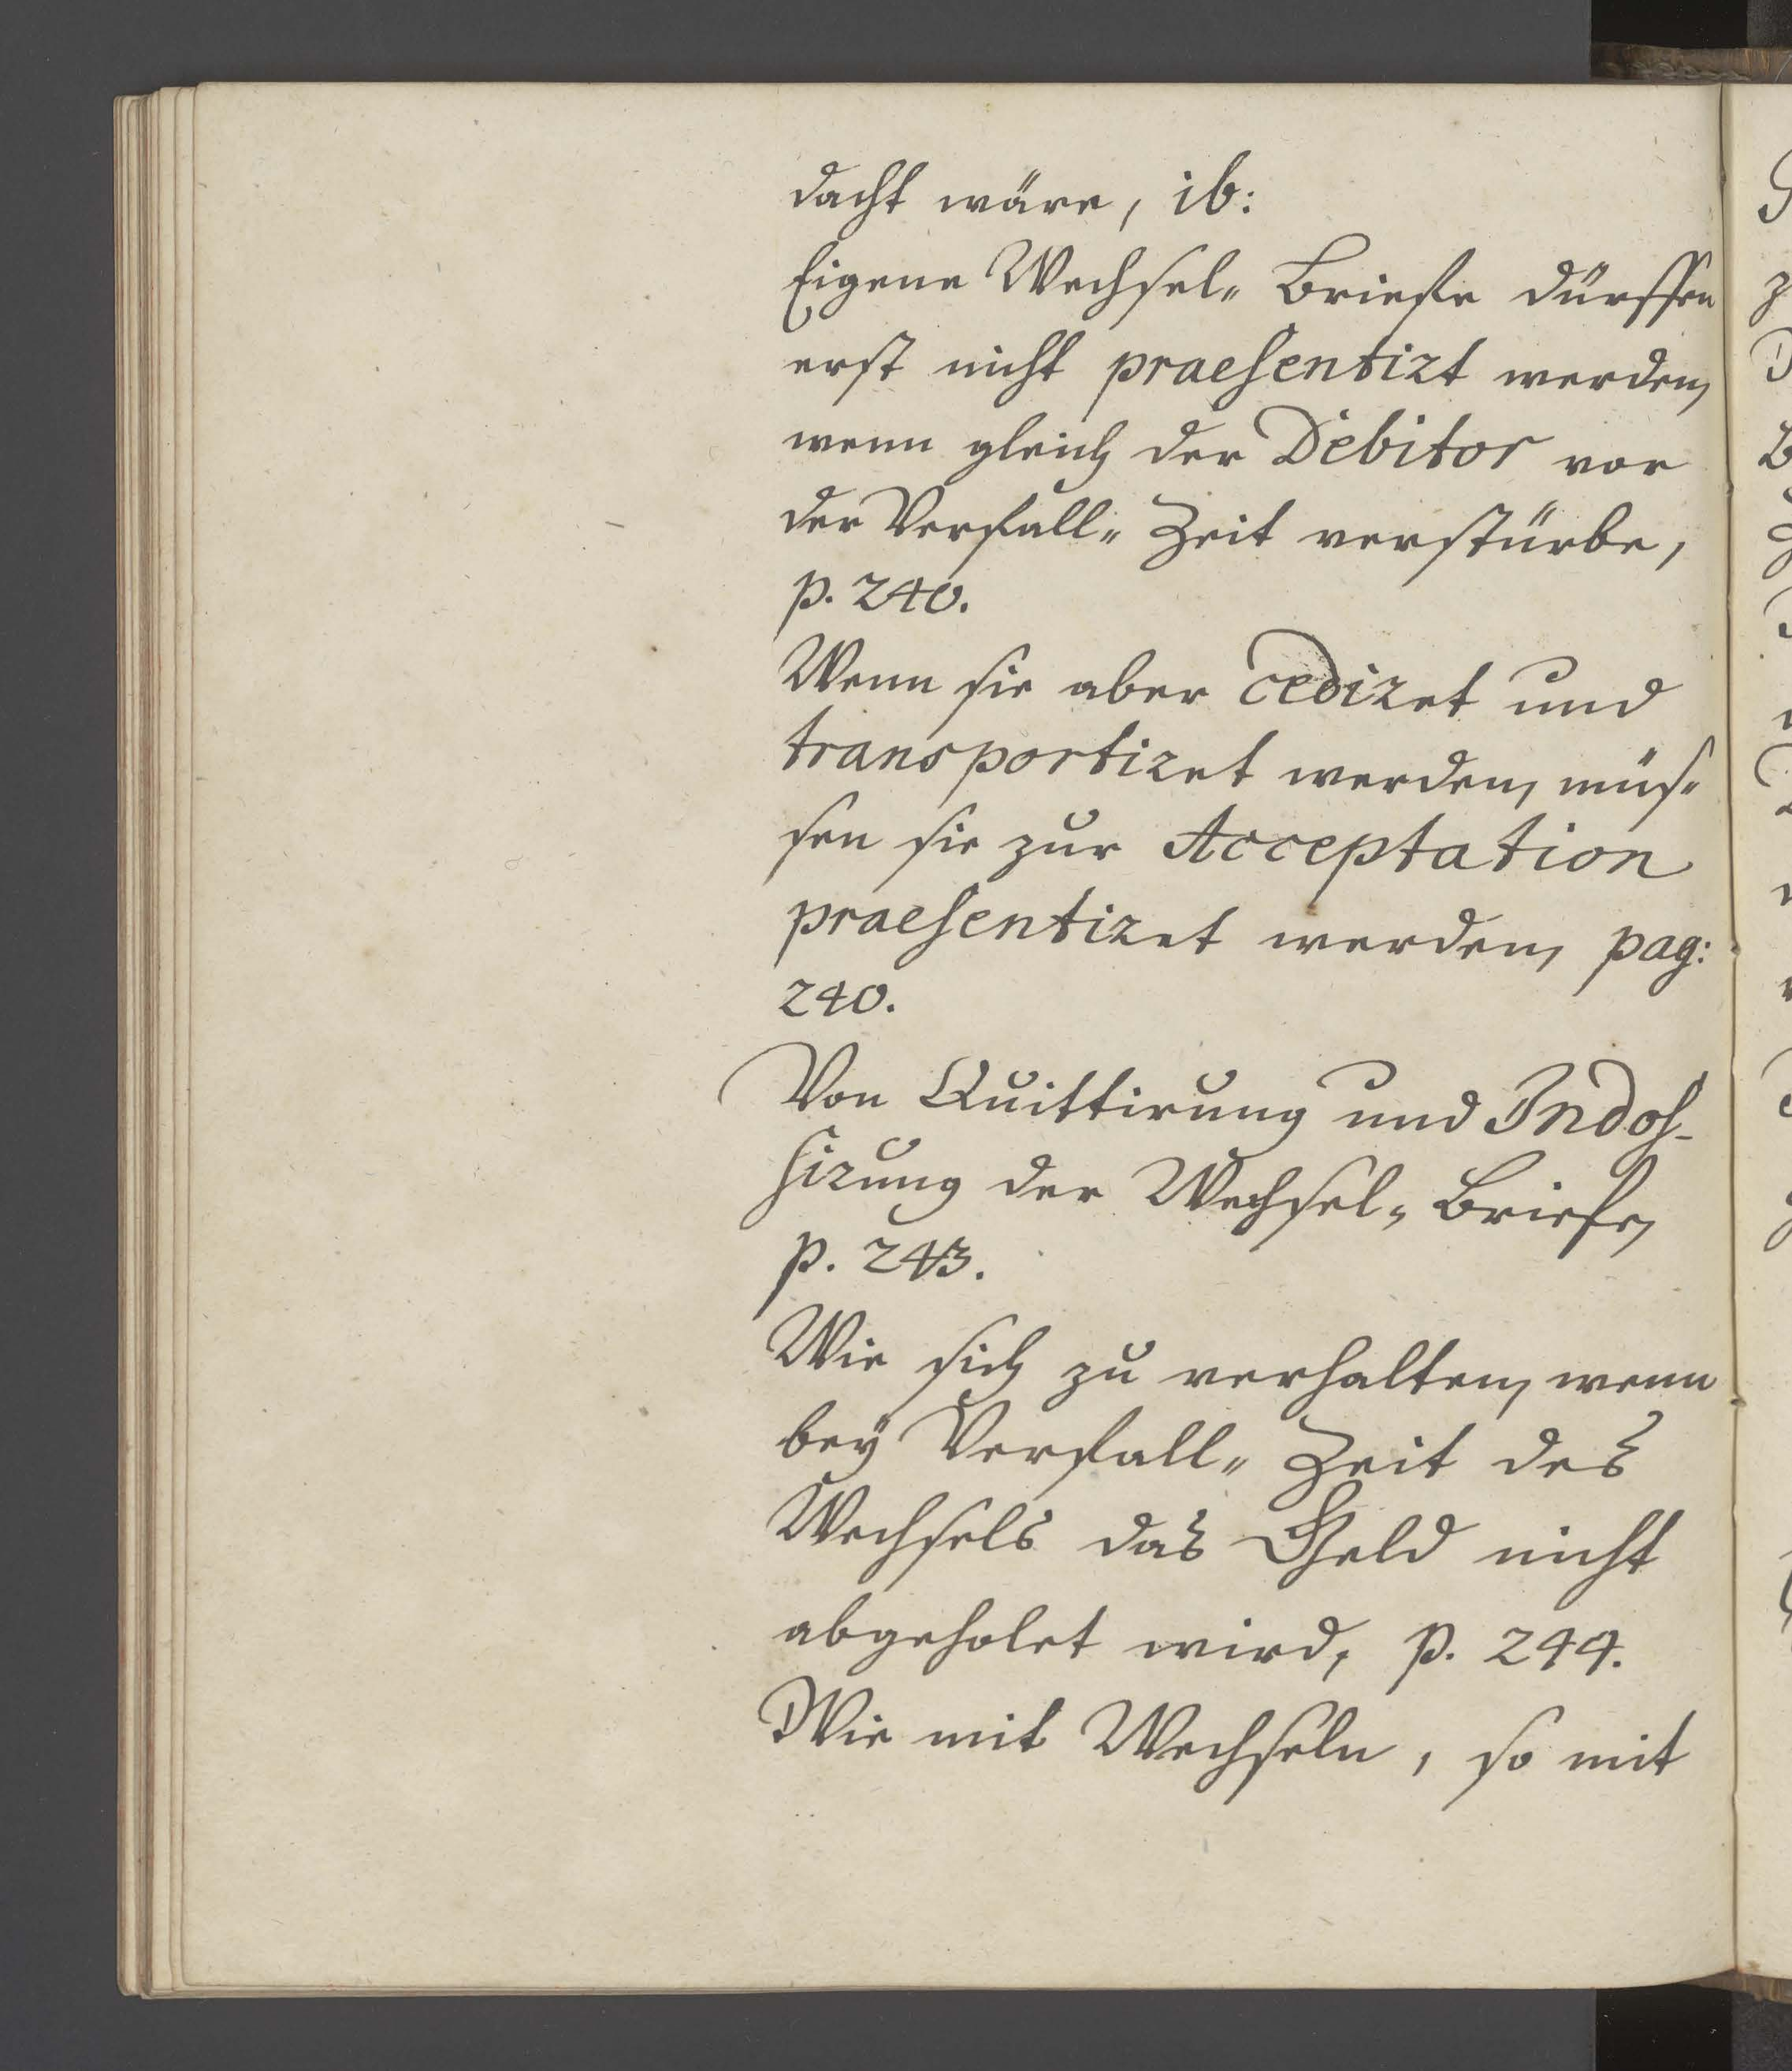 dacht wäre, ib:
Eigene Wechsel- Briefe dürffen
erst nicht praesentirt werden,
wenn gleich der Debitor vor
der Verfall- Zeit verstürbe,
p. 240.
Wenn sie aber cediret und
transportiret werden, müs-
sen sie zur Acceptation
praesentiret werden, pag:
240.
Von Quittirung und Indos-
sirung der Wechsel- Briefe,
p. 243.
Wie sich zu verhalten, wenn
bey Verfall- Zeit des
Wechsels das Geld nicht
abgeholet wird, p. 244.
Wie mit Wechseln, so mit